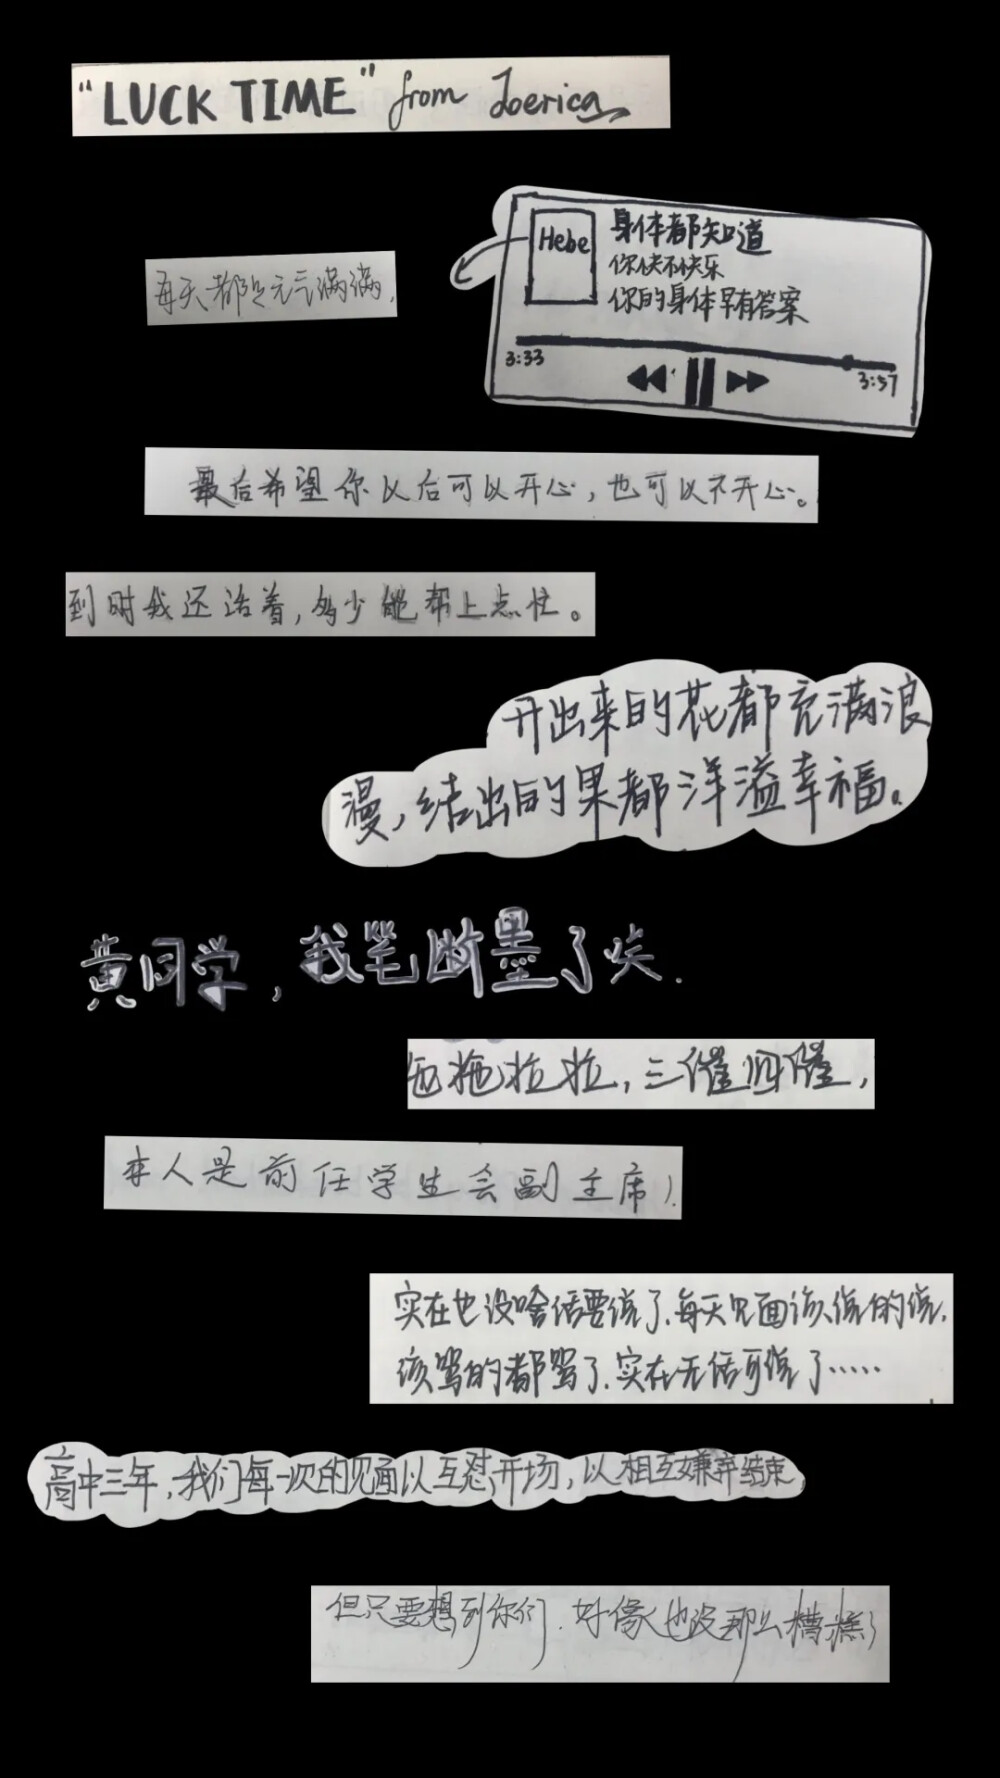 "LUCK TIME" from Joerica
Hebe
身体都知道
你快不快乐
你的身体早有答案
3:33
3:57
每天都是元气满满,
最后希望你以后可以开心,也可以不开心。
到时我还活着,多少能帮上点忙。
开出来的花都充满浪
漫,结出的果都洋溢幸福。
黄同学,我笔断墨了唉.
拖拉拉,三催四催,
本人是前任学生会副主席).
实在也没啥话要说了.每天见面该说的说,
该骂的都骂了.实在无话可说了……
高中三年,我们每一次的见面以互怼开场,以相互嫌弃结束,
但只要想到你们.好像也没那么糟糕了